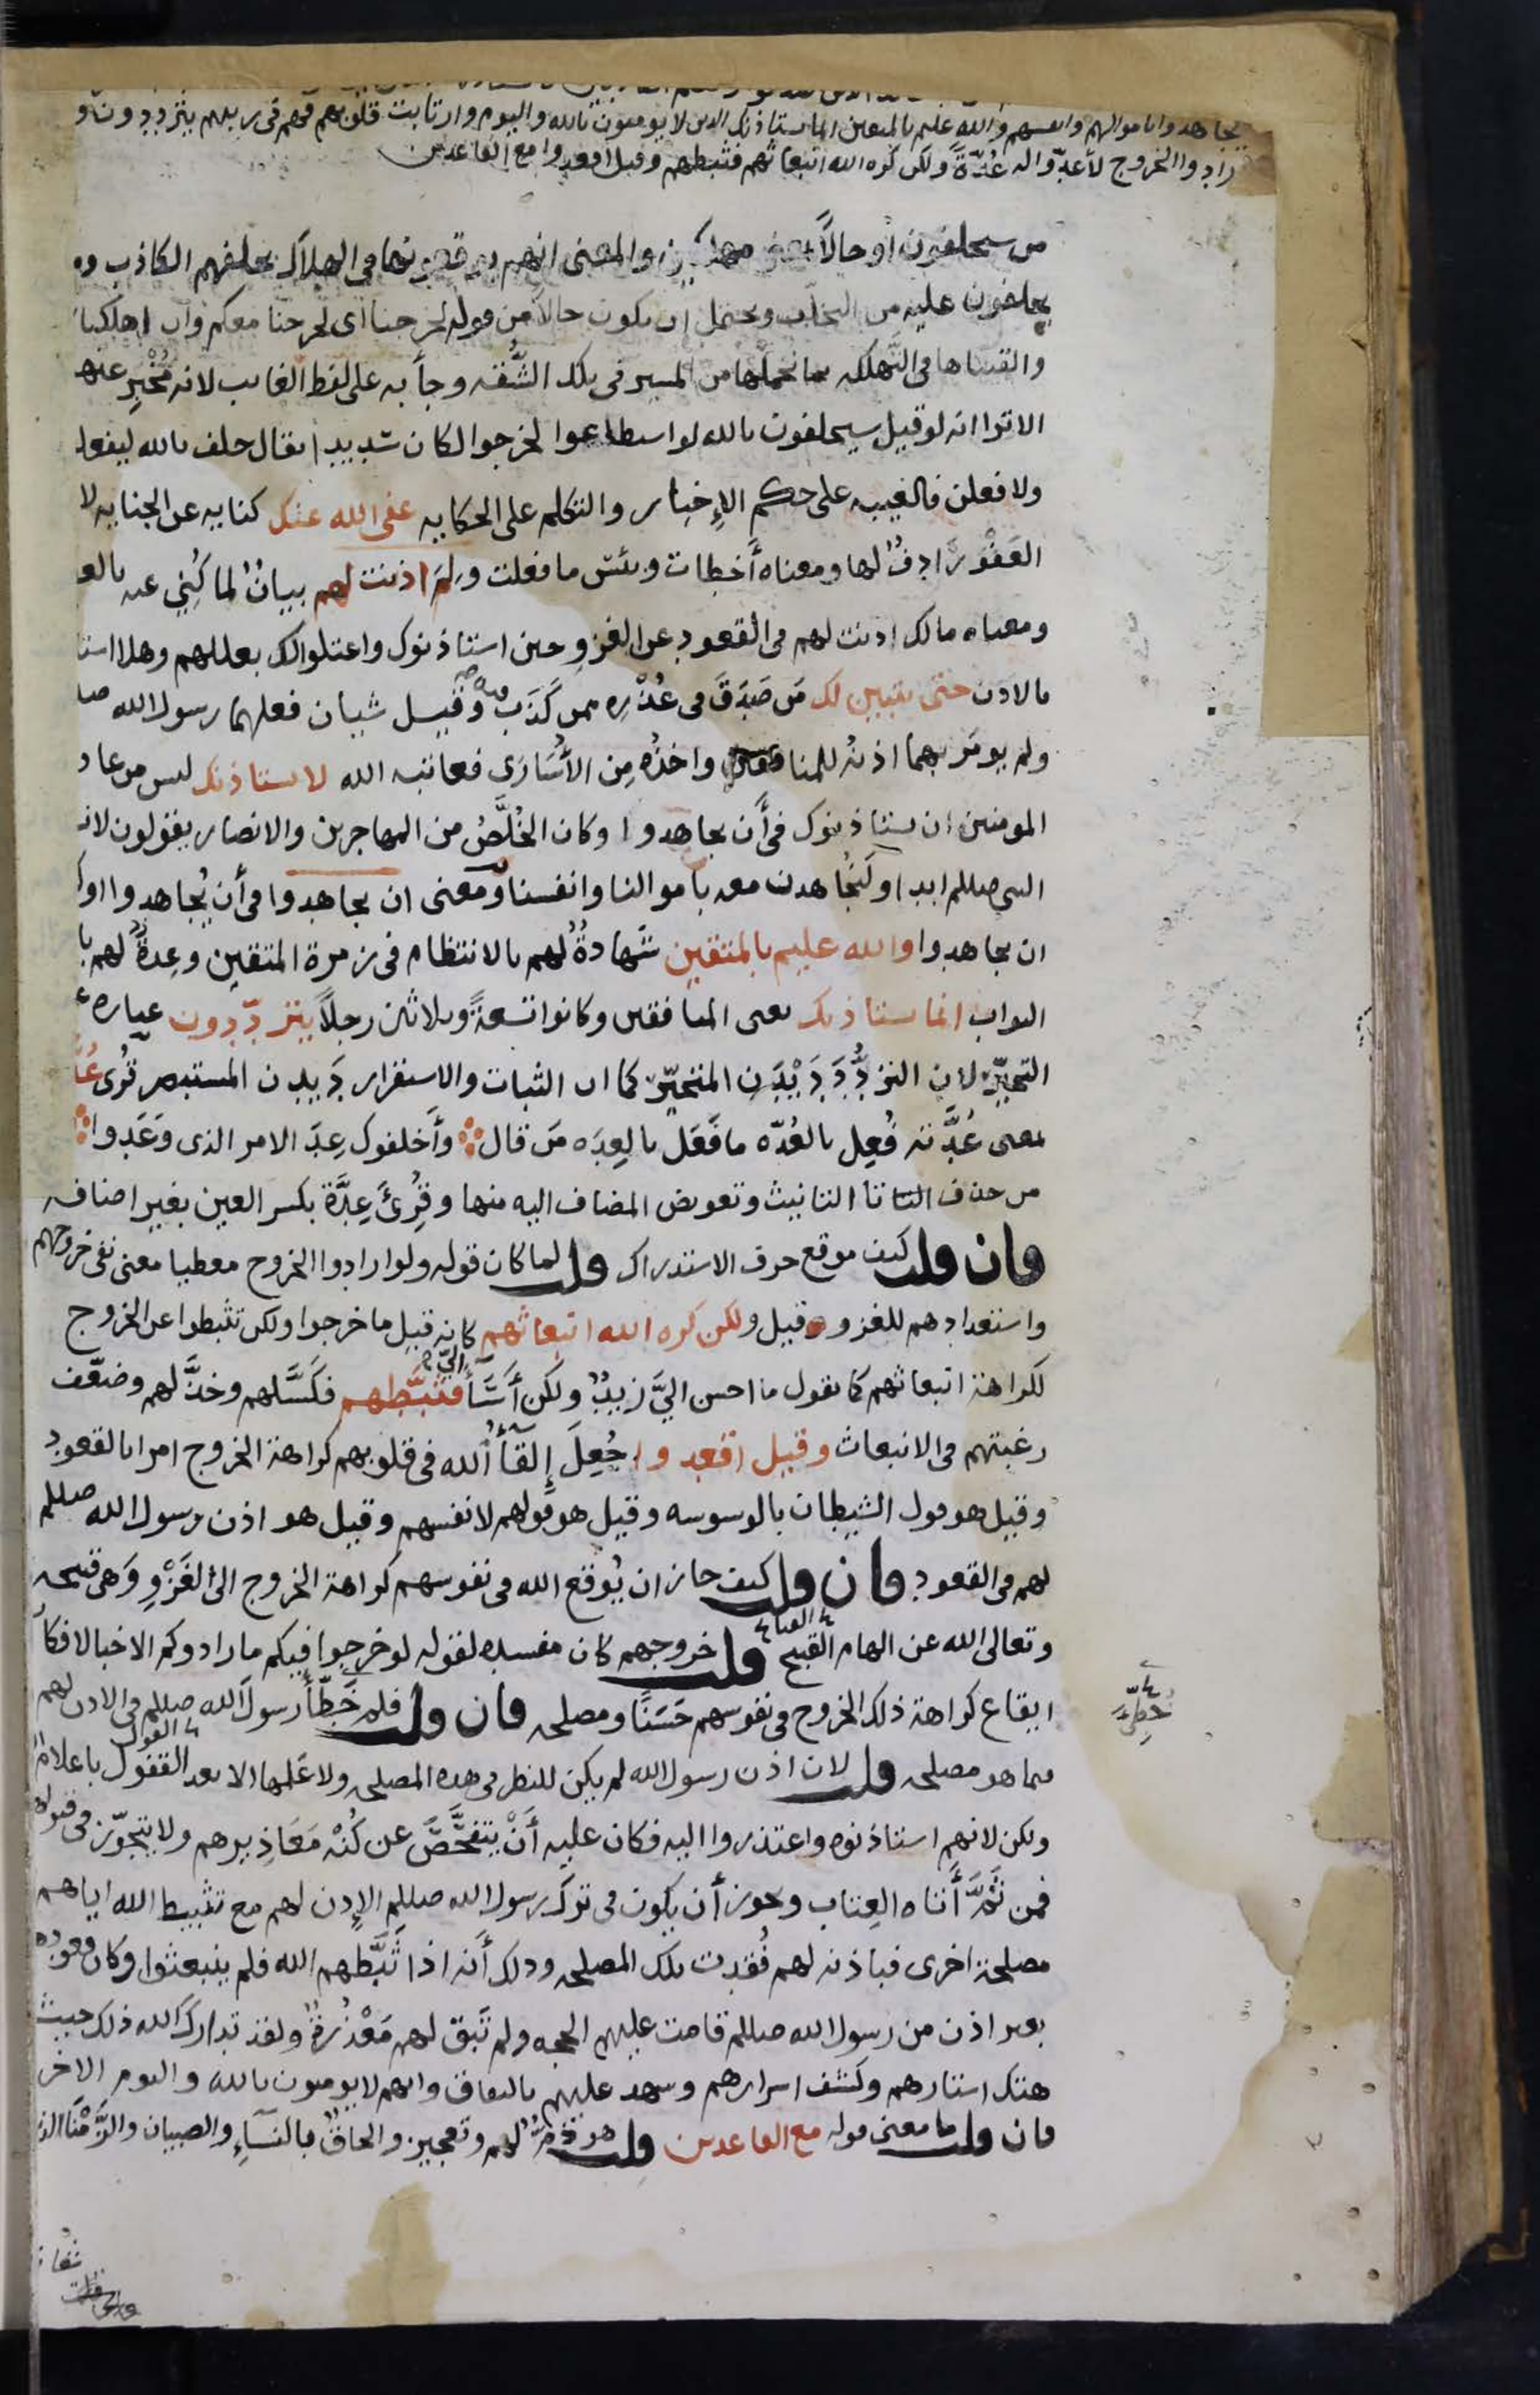 يجاهدوا باموالهم وانفسهم والله عليم بالمتقين انما يستاذنك الذين لا يومنون بالله واليوم وارتابت قلوبهم فهم في ريبهم يترددون و
رادوا الخروج لأعدّوا له عُدّةً ولكن كره الله انبعاثهم فثبطهم وقيل اقعدوا مع القاعدين
من سيحلفون او حالاً بمعنى مهلكين والمعنى انهم يوقعونها في الهلاك بحلفهم الكاذب وه
يحلفون عليه من التخلف ويحتمل ان يكون حالا من قوله لخرجنا اى لخرجنا معكم وان اهلكنا
والقيناها في التهلكه بما نحملها من المسير في تلك الشُّقه وجأ به على لفظ الغايب لانه مُخْبِر عنهم
الا ترا انه لو قيل سيحلفون بالله لو استطاعوا لخرجوا لكان شديدا يقال حلف بالله ليفعلن
ولا فعلن فالغيبه على حكم الإخبار والتكلم على الحكايه عفى الله عنك كنايه عن الجنايه لا
العَفْوَ رَادِفٌ لها ومعناه أخطات وبئس ما فعلت ولِمَ اذنت لهم بيانٌ لما كُنِي عنه بالعـ
ومعناه مالك اذنت لهم في القعود عن الغزو حين استاذنوك واعتلوا لك بعللهم وهلا استا
بالاذن حتى يتبين لك مَن صَدَقَ في عُذْرِه ممن كَذَب فيه وقيل شيان فعلهما رسول الله صلـ
ولم يومَر بهما اذنُه للمنافقين واخذُه مِن الأُسَارَى فعاتبه الله لا يستاذنك ليس من عاد
المومنين ان يستاذنوك في أَن يجاهدوا وكان الخُلَّصُ من المهاجرين والانصار يقولون لانـ
النبي صللم ابدا ولَنُجَاهدن معه باموالنا وانفسنا ومعنى ان يجاهدوا في أن يُجاهدوا او ك
ان يجاهدوا والله عليم بالمتقين شهادةٌ لهم بالانتظام في زمرة المتقين وعِدةٌ لهم با
الثواب انما يستاذنك يعني المنافقين وكانوا تسعةً وثلاثين رجلاً يتردّدون عباره ع
التحيّر لان التردُّدَ دَيْدَن المتحيّر كما ان الثبات والاستقرار دَيدن المستبصر قُرى عُدَّ
بمعنى عُدَّته فُعِل بالعُدّه ما فَعَل بالعِدَه مَن قال وأَخلفوك عِدَ الامر الذي وَعَدوا
من حذف التا تا التانيث وتعويض المضاف اليه منها وقُرِئَ عِدَّة بكسر العين بغير اضافه
فان قلت كيف موقع حرف الاستدراك قلت لما كان قوله ولو ارادوا الخروج معطيا معنى نفي خروجهم
واستعدادهم للغزو قيل ولكن كره الله انبعاثهم كانه قيل ما خرجوا ولكن تثبطوا عن الخروج
لكراهة انبعاثهم كما يقول ما احسن اليَّ زيدٌ ولكن أَسَأَ اليّ فثبَّطهم فكَسَّلهم وخذَّلهم وضعّف
رغبتهم في الانبعاث وقيل اقعدوا جُعِلَ إِلقأُ الله في قلوبهم كراهة الخروج امرا بالقعود
وقيل هو قول الشيطان بالوسوسه وقيل هو قولهم لانفسهم وقيل هو اذن رسول الله صللم
لهم في القعود فان قلت كيف جاز ان يُوقع الله في نفوسهم كراهة الخروج الى الغَزْوِ وَهي قبيحه
وتعالى الله عن الهام القبيح قلت خروجهم كان مفسده لقوله لو خرجوا فيكم ما زادوكم الا خبالا فكا
ايقاع كراهة ذلك الخروج في نفوسهم حَسَنًا ومصلحه فان قلت فلم خَطّأ رسولَ الله صللم في الاذن لهم
خُطِّئ
فيما هو مصلحه قلت لان اذن رسول الله لم يكن للنظر في هذه المصلحه ولا عَلمها الا بعد القفول باعلام
القول
ولكن لانهم استاذنوه واعتذروا اليه فكان عليه أَنْ يتفحَّصَ عن كُنْه مَعَاذِيرهم ولا يتجوّز في قبولها
فمن ثَمَّ أَتاه العِتاب ويجوز أن يكون في ترك رسول الله صللم الإذن لهم مع تثبيط الله اياهم
مصلحة اخرى فباذنه لهم فُقِدت تلك المصلحه وذلك أَنه اذا ثَبَّطهم الله فلم ينبعثوا وكان قعودُه
بغير اذن من رسول الله صللم قامت عليهم الحجه ولم تَبق لهم مَعْذُرةٌ ولقد تدارك الله ذلك حيث
هتك استارهم وكشف اسرارهم وشهد عليهم بالنفاق وانهم لا يومنون بالله واليوم الاخر
فان قلت ما معنى قوله مع القاعدين قلت هو ذَمٌّ لهم وتعجيز والحاقٌ بالنِسَآءِ والصبيان والزَّمْنَا الذ